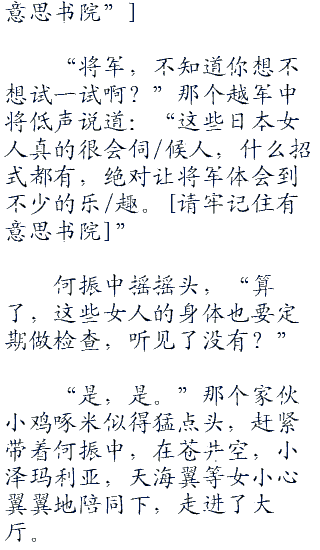 意思书院”]
“将军，不知道你想不
想试一试啊？”那个越军中
将低声说道：“这些日本女
人真的很会伺/候人，什么招
式都有，绝对让将军体会到
不少的乐/趣。[请牢记住有
意思书院]”
何振中摇摇头，“算
了，这些女人的身体也要定
期做检查，听见了没有？”
“是，是。”那个家伙
小鸡啄米似得猛点头，赶紧
带着何振中，在苍井空，小
泽玛利亚，天海翼等女小心
翼翼地陪同下，走进了大
厅。